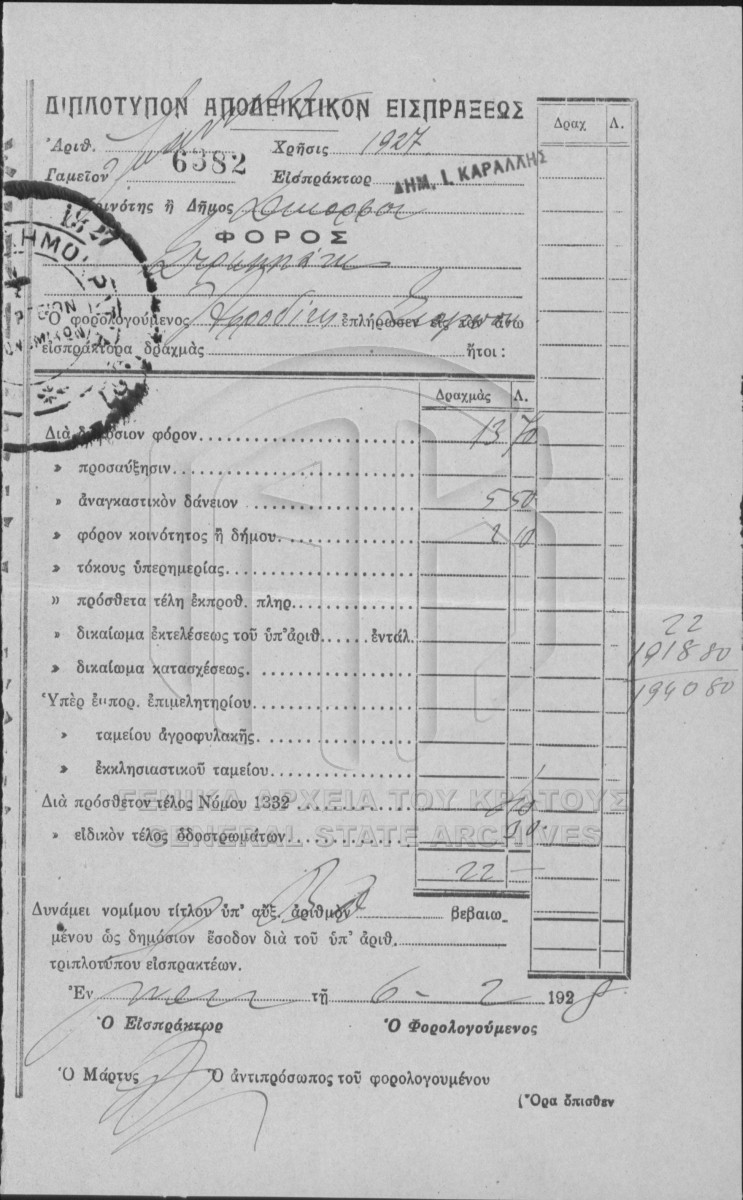 ΔΙΠΛΟΤΥΠΟΝ ΑΠΟΔΕΙΚΤΙΚΟΝ ΕΙΣΠΡΑΞΕΩΣ
Ἀριθ. 6382 Χρῆσις 1927
Ταμεῖον Εἰσπράκτωρ ΔΗΜ. Ι. ΚΑΡΑΛΛΗΣ
Κοινότης ἢ Δῆμος
ΦΟΡΟΣ
Ὁ φορολογούμενος ἐπλήρωσεν εἰς τὸν ἄνω
εἰσπράκτορα δραχμὰς ἤτοι:
Δραχ Λ.
Δραχμὰς Λ.
Διὰ δημόσιον φόρον 13 70
» προσαύξησιν
» ἀναγκαστικὸν δάνειον 5 50
» φόρον κοινότητος ἢ δήμου. 2 10
» τόκους ὑπερημερίας
» πρόσθετα τέλη ἐκπροθ. πληρ.
» δικαίωμα ἐκτελέσεως τοῦ ὑπ' ἀριθ. ἐντάλ.
» δικαίωμα κατασχέσεως.
Ὑπὲρ ἐμπορ. ἐπιμελητηρίου
» ταμείου ἀγροφυλακῆς.
» ἐκκλησιαστικοῦ ταμείου
Διὰ πρόσθετον τέλος Νόμου 1332
» εἰδικὸν τέλος ὁδοστρωμάτων
22 —
22
1918 80
1940 80
ΓΕΝΙΚΑ ΑΡΧΕΙΑ ΤΟΥ ΚΡΑΤΟΥΣ
GENERAL STATE ARCHIVES
Δυνάμει νομίμου τίτλου ὑπ' αὔξ. ἀριθμὸν βεβαιω-
μένου ὡς δημόσιον ἔσοδον διὰ τοῦ ὑπ' ἀριθ.
τριπλοτύπου εἰσπρακτέων.
Ἐν τῇ 6 - 2 1928
Ὁ Εἰσπράκτωρ Ὁ Φορολογούμενος
Ὁ Μάρτυς Ὁ ἀντιπρόσωπος τοῦ φορολογουμένου
(Ὅρα ὄπισθεν